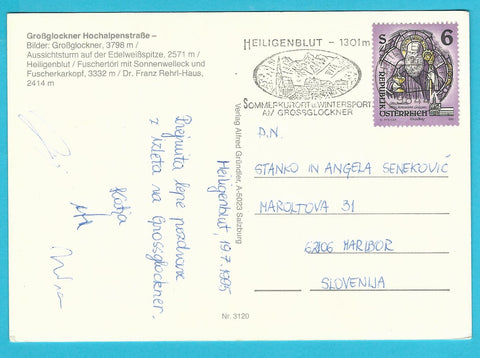 Großglockner Hochalpenstraße –
Bilder: Großglockner, 3798 m /
Aussichtsturm auf der Edelweißspitze, 2571 m /
Heiligenblut / Fuschertörl mit Sonnenwelleck und
Fuscherkarkopf, 3332 m / Dr. Franz Rehrl-Haus,
2414 m
Heiligenblut, 19.7.1995
Prejmita lepe pozdrave
z izleta na Grossglockner.
Katja
Verlag Alfred Gründler, A-5023 Salzburg
Nr. 3120
HEILIGENBLUT - 1301m
SOMMERKURORT U. WINTERSPORT
AM GROSSGLOCKNER
S 6
REPUBLIK
ÖSTERREICH
D.N.
STANKO IN ANGELA SENEKOVIČ
MAROLTOVA 31
62106 MARIBOR
SLOVENIJA